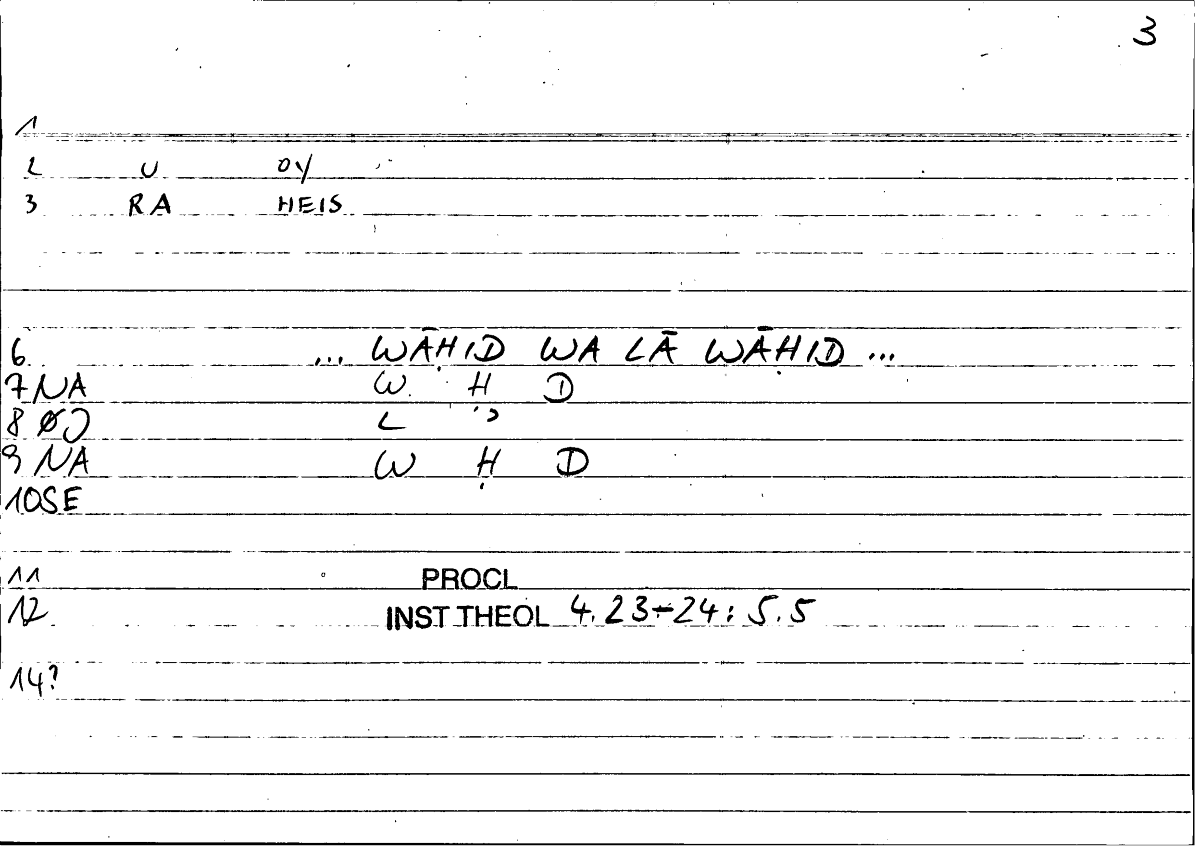 3
1
2 U OY
3 RA HEIS
6 ... WĀḤID WA LĀ WĀḤID ...
7 NA W Ḥ D
8 L
9 NA W Ḥ D
10 SE
11 PROCL
12 INST THEOL 4.23-24: 5.5
14?